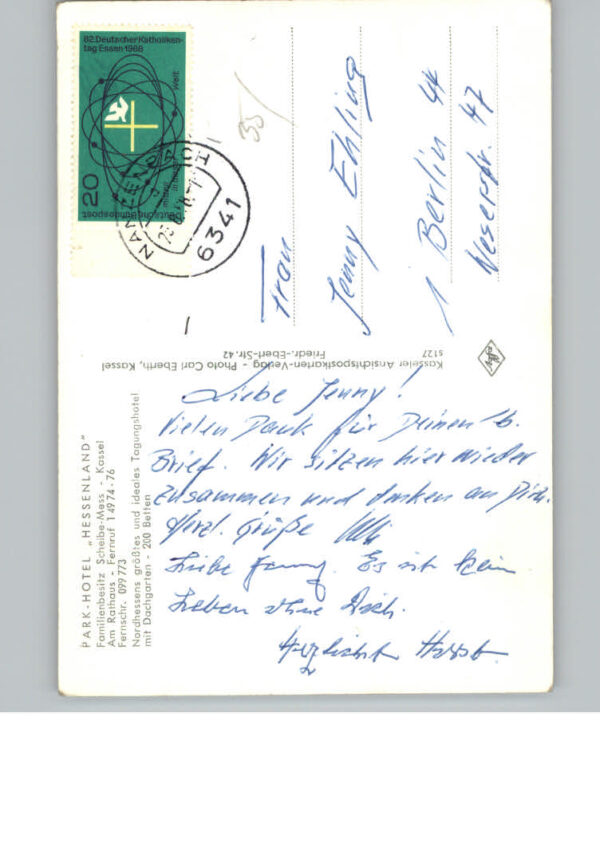 PARK-HOTEL „HESSENLAND"
Familienbesitz Scheibe-Mess - Kassel
Am Rathaus - Fernruf 1 49 74-76
Fernschr. 099 773
Nordhessens größtes und ideales Tagungshotel
mit Dachgarten - 200 Betten
Liebe Jenny!
Vielen Dank für Deinen l.
Brief. Wir sitzen hier wieder
zusammen und denken an Dich.
Herzl. Grüße
Liebe Jenny. Es ist kein
Leben ohne Dich.
Herzlichst Horst.
Kasseler Ansichtspostkarten-Verlag - Photo Carl Eberth, Kassel
Friedr.-Ebert-Str. 42
s127
Agfa
82. Deutscher Katholiken-
tag Essen 1968
Welt
20
deutsche bundespost
6341
35/
Frau
Jenny Ehling
1 Berlin 44
Weserstr. 47